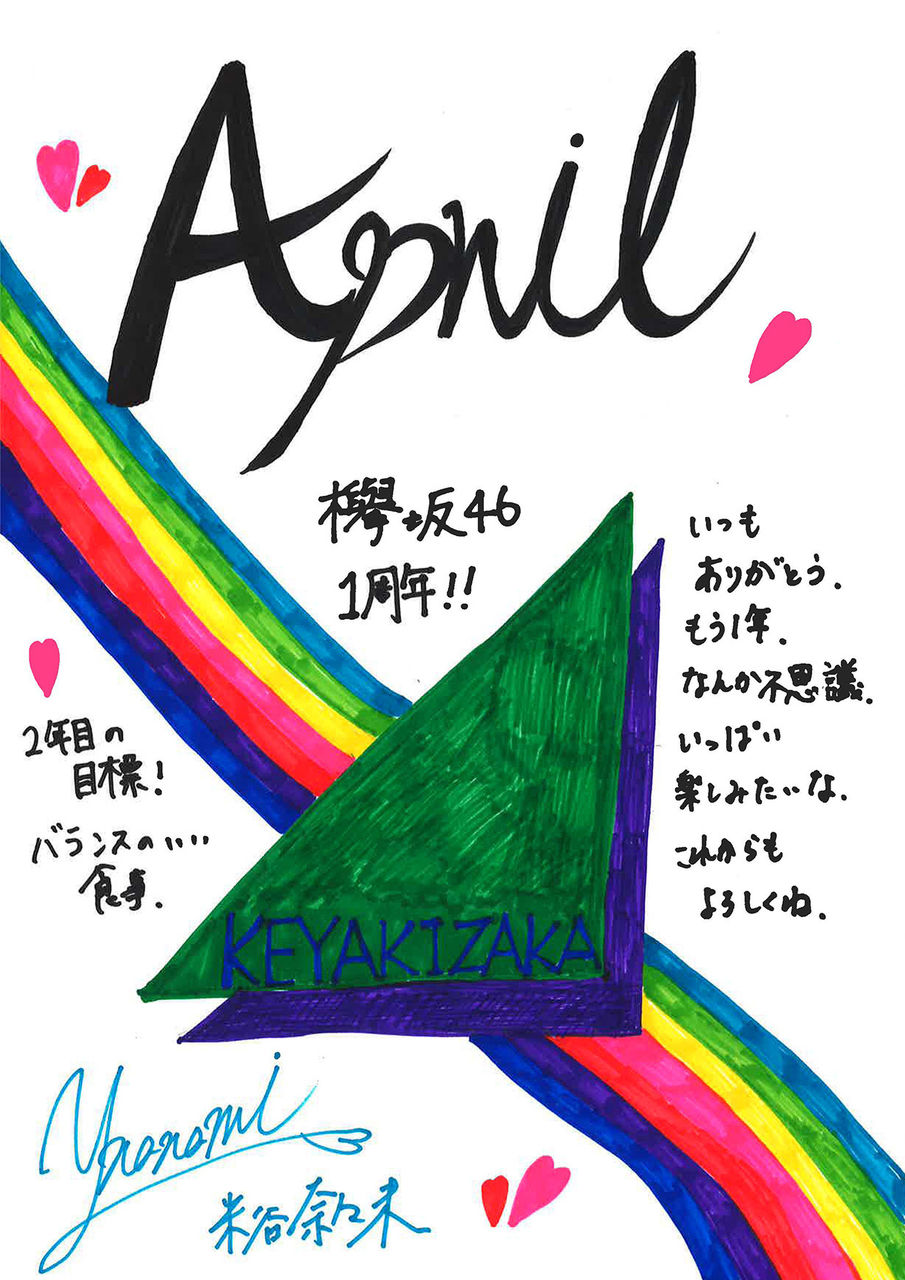 April
欅坂46
1周年!!
いつも
ありがとう.
もう1年.
なんか不思議.
いっぱい
楽しみたいな.
これからも
よろしくね.
2年目の
目標!
バランスのいい
食事.
KEYAKIZAKA
Y.nanami
米谷奈々未